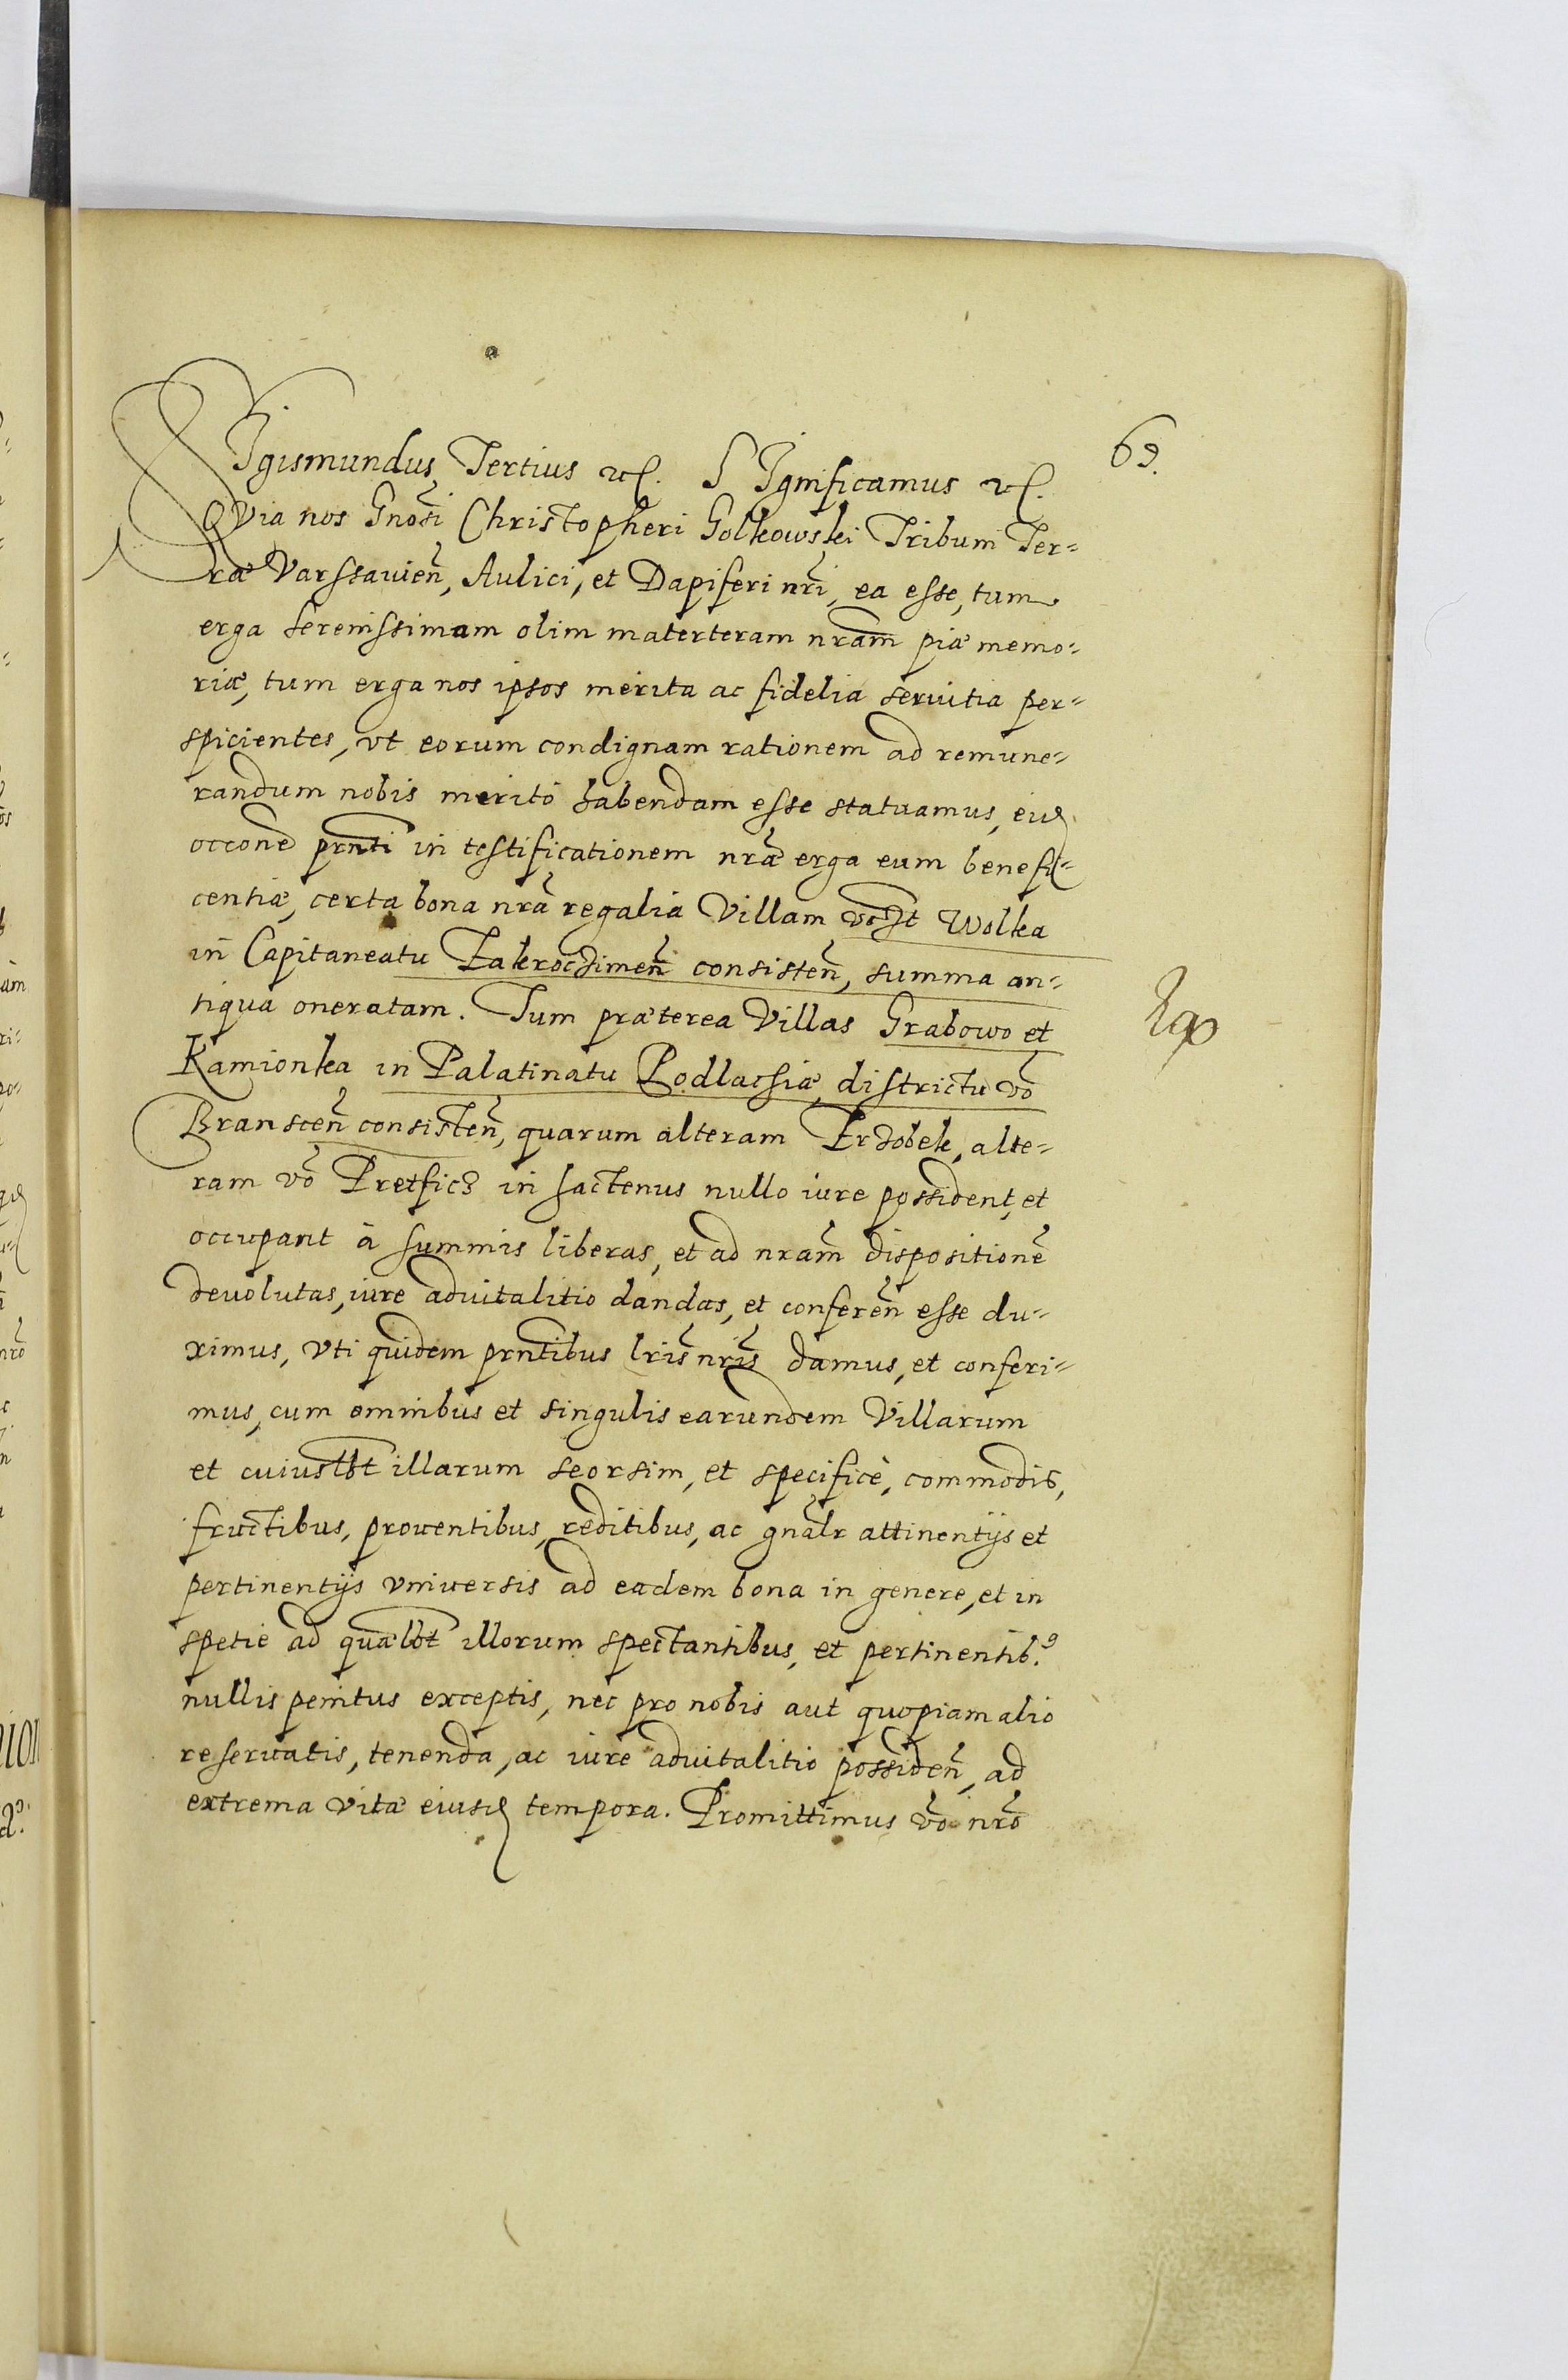 69.
SIgismundus Tertius etc. SIgnificamus etc.
QVia nos Gnosi Christopheri Golkowski Tribuni Ter=
ræ Varssauien̄, Aulici, et Dapiferi nrī, ea esse, tum
erga Serenissimam olim materteram nram̄ piæ memo=
riæ, tum erga nos ipsos merita ac fidelia seruitia per=
spicientes, vt eorum condignam rationem ad remune=
randum nobis meritò habendam esse statuamus, eius
occone prnti in testificationem nrǣ erga eum benefi=
centiæ, certa bona nrā regalia Villam Wolka
in Capitaneatu Zakroczimen̄ consisten̄, summa an=
tiqua oneratam. Tum præterea Villas Grabowo et
Kamionka in Palatinatu Podlachiæ, districtu vō
Branscen̄ consisten̄, quarum alteram Erdobek, alte=
ram vō Pretficz in hactenus nullo iure possident, et
occupant à summis liberas, et ad nram̄ dispositionē
deuolutas, iure aduitalitio dandas, et conferen̄ esse du=
ximus, vti quidem prntibus lris̄ nris̄ damus, et conferi=
mus, cum omnibus et singulis earundem Villarum
et cuiuslbt illarum seorsim, et specificè, commodis,
fructibus, prouentibus, reditibus, ac gnalr attinentijs et
pertinentijs vniuersis ad eadem bona in genere, et in
spetie ad quælbt illorum spectantibus, et pertinentib9.
nullis penitus exceptis, nec pro nobis aut quopiam alio
reseruatis, tenenda, ac iure aduitalitio possiden̄, ad
extrema vitæ eiusd tempora. Promittimus vō nrō